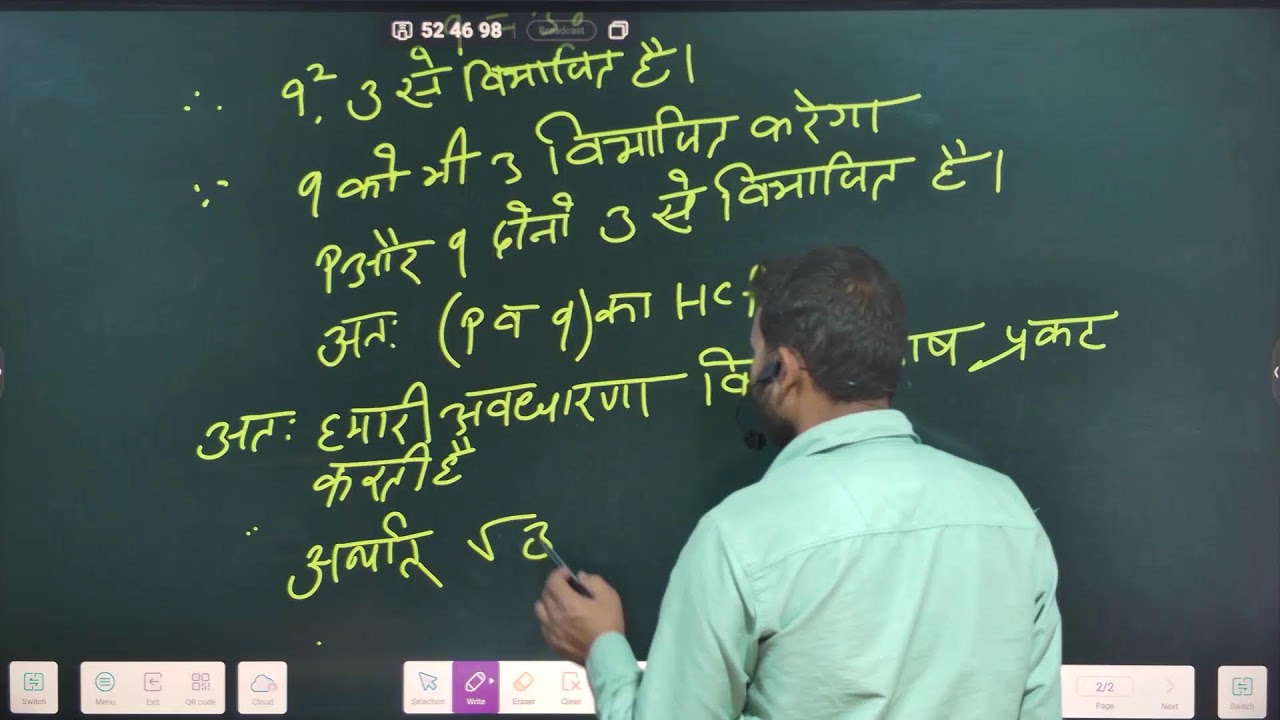 52 46 98 Broadcast
∴ q² 3 से विभाजित है।
∵ q को भी 3 विभाजित करेगा
P और q दोनो 3 से विभाजित है।
अतः (P व q) का HCF
अतः हमारी अवधारणा प्रकट
करती है
अर्थात् √3
Switch Menu Exit QR code Cloud Selection Write Eraser Clean 2/2 Page Next Switch